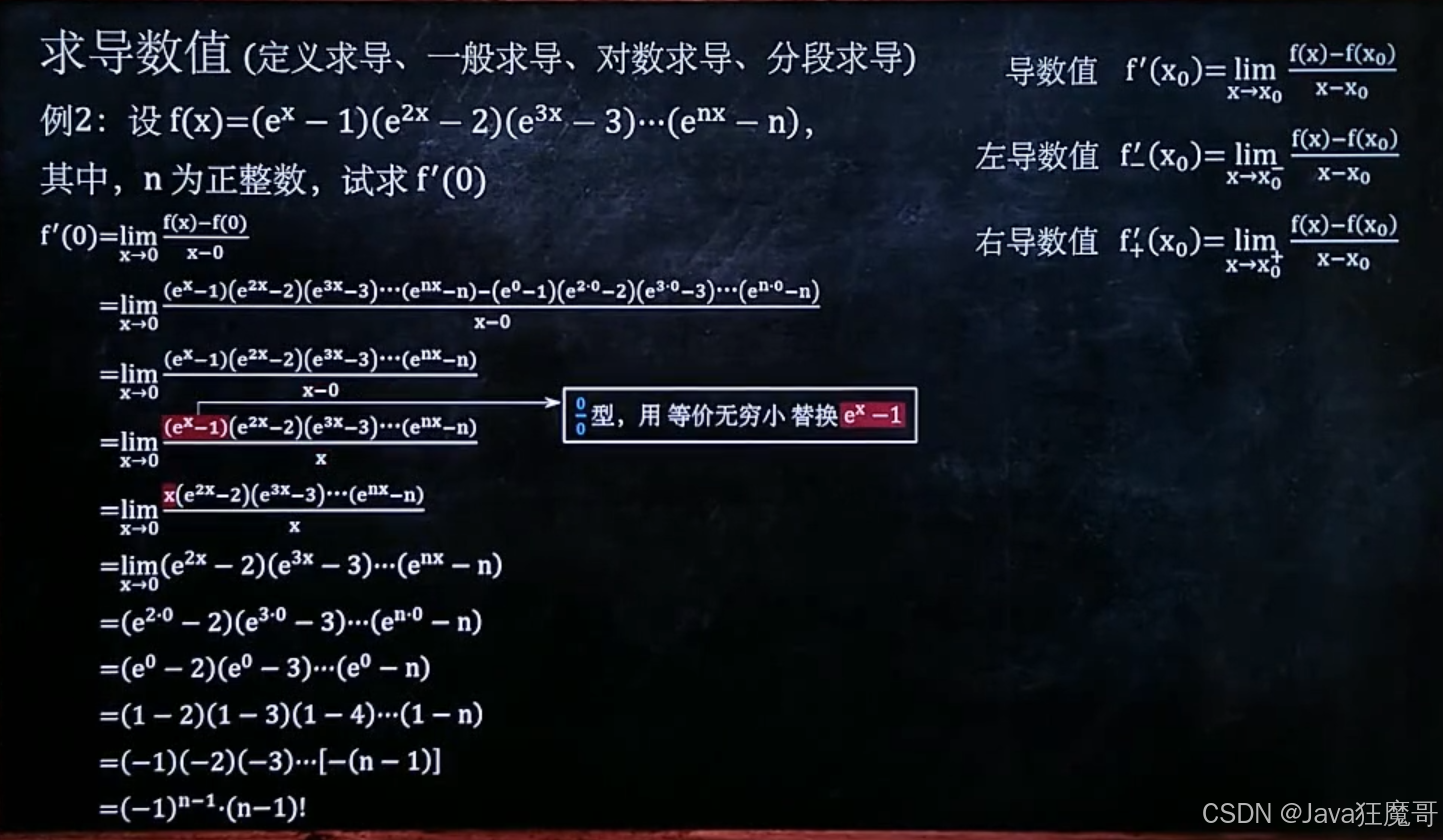 求导数值 (定义求导、一般求导、对数求导、分段求导)
例2：设 f(x)=(eˣ − 1)(e²ˣ − 2)(e³ˣ − 3)⋯(eⁿˣ − n)，
其中，n 为正整数，试求 f′(0)
f′(0)=lim_{x→0} (f(x)−f(0))/(x−0)
=lim_{x→0} ((eˣ−1)(e²ˣ−2)(e³ˣ−3)⋯(eⁿˣ−n)−(e⁰−1)(e^{2·0}−2)(e^{3·0}−3)⋯(e^{n·0}−n))/(x−0)
=lim_{x→0} ((eˣ−1)(e²ˣ−2)(e³ˣ−3)⋯(eⁿˣ−n))/(x−0)
=lim_{x→0} ((eˣ−1)(e²ˣ−2)(e³ˣ−3)⋯(eⁿˣ−n))/x
0/0 型，用 等价无穷小 替换 eˣ −1
=lim_{x→0} (x(e²ˣ−2)(e³ˣ−3)⋯(eⁿˣ−n))/x
=lim_{x→0} (e²ˣ − 2)(e³ˣ − 3)⋯(eⁿˣ − n)
=(e^{2·0} − 2)(e^{3·0} − 3)⋯(e^{n·0} − n)
=(e⁰ − 2)(e⁰ − 3)⋯(e⁰ − n)
=(1 − 2)(1 − 3)(1 − 4)⋯(1 − n)
=(−1)(−2)(−3)⋯[−(n − 1)]
=(−1)ⁿ⁻¹·(n−1)!
导数值 f′(x₀)=lim_{x→x₀} (f(x)−f(x₀))/(x−x₀)
左导数值 f′₋(x₀)=lim_{x→x₀⁻} (f(x)−f(x₀))/(x−x₀)
右导数值 f′₊(x₀)=lim_{x→x₀⁺} (f(x)−f(x₀))/(x−x₀)
CSDN @Java狂魔哥